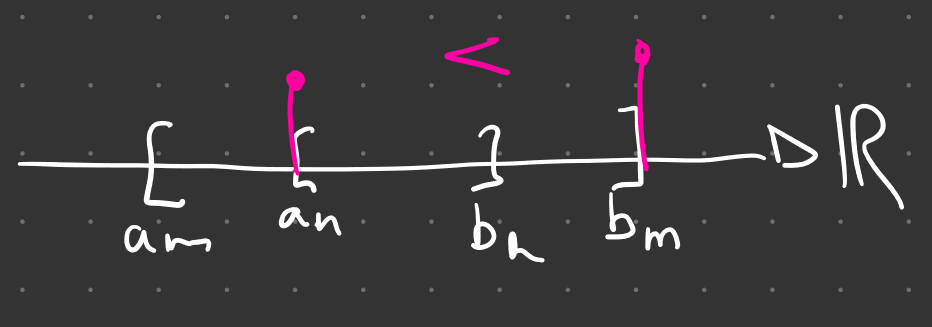 <
ℝ
aₘ aₙ bₙ bₘ